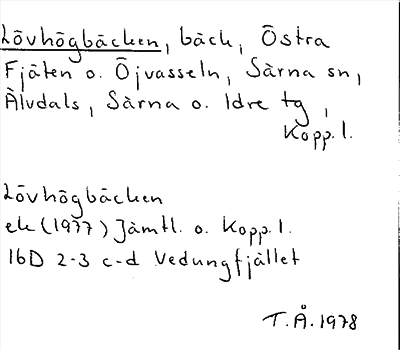 Lövhögbäcken, bäck, Östra
Fjäten o. Öjvasseln, Särna sn,
Älvdals, Särna o. Idre tg,
Kopp. l.
Lövhögbäcken
ek (1977) Jämtl. o. Kopp. l.
16D 2-3 c-d Vedungfjället
T. Å. 1978